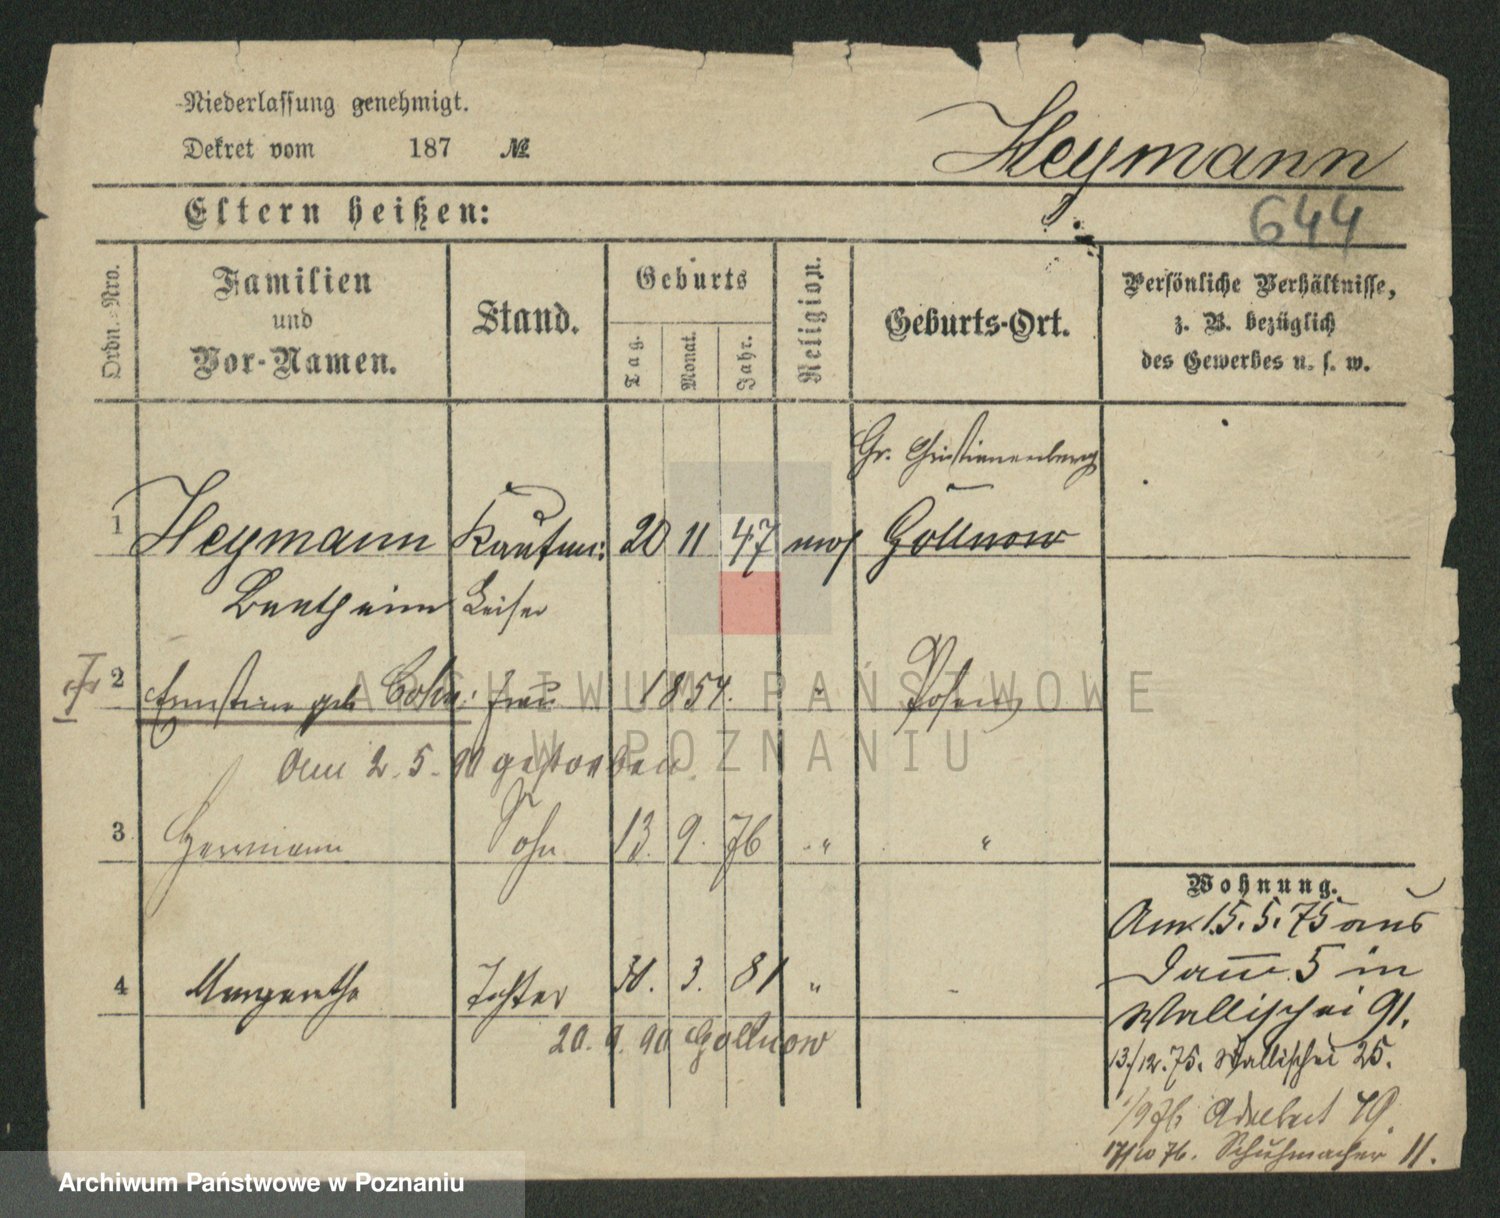 Niederlassung genehmigt.
Dekret vom 187 №
Heymann
644
Eltern heißen:
Ordn.-Nro.
Familien
und
Vor-Namen.
Stand.
Geburts
Tag.
Monat.
Jahr.
Religion.
Geburts-Ort.
Persönliche Verhältnisse,
z. B. bezüglich
des Gewerbes u. s. w.
Gr. Christinenberg
1 Heymann Kaufm: 20 11 47 mos Gollnow
2 Ernstine geb Cohn: Frau 1854. " Posen
Am 2. 5. 90 gestorben
3 Herrmann Sohn 13. 9. 76 " "
4 Margarethe Tochter 31. 3. 81 "
20. 9. 90 Gollnow
Wohnung.
Am 15. 5. 75 aus
5 in
Wallischei 91.
13./12. 75. Wallischei 25.
1/9 76
17/10 76. Schuhmacher 11.
ARCHIWUM PAŃSTWOWE
W POZNANIU
Archiwum Państwowe w Poznaniu